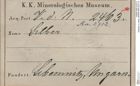 K. K. Mineralogisches Museum.
Acq. Post J. d. N. 2463.
Name Silber
Fundort Schemnitz, Ungarn